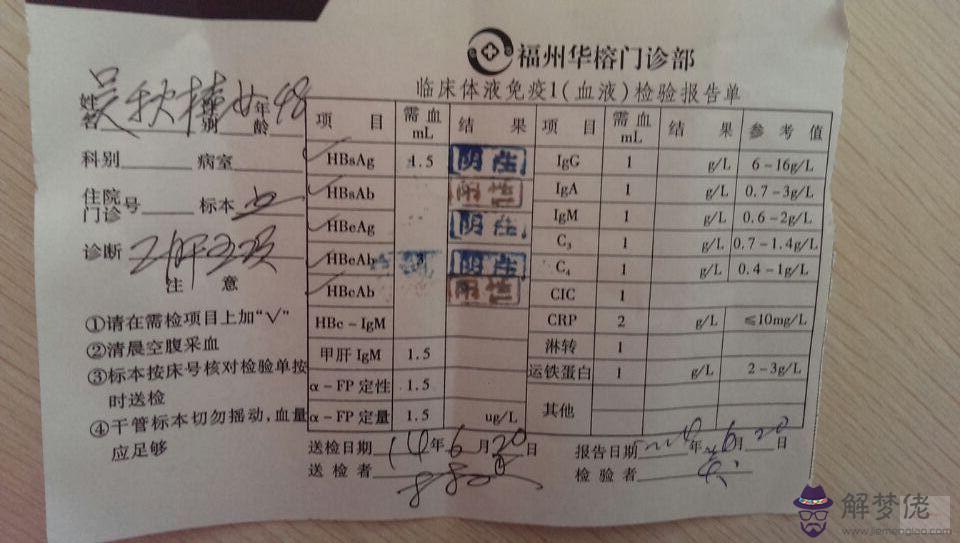 福州华榕门诊部
临床体液免疫1(血液)检验报告单
姓名 别 年龄
科别 病室
住院门诊 号 标本 血
诊断 乙肝五项
注意
①请在需检项目上加“√”
②清晨空腹采血
③标本按床号核对检验单按时送检
④干管标本切勿摇动,血量应足够
项目 需血mL 结果 项目 需血mL 结果 参考值
√ HBsAg 1.5 阴性 IgG 1 g/L 6-16g/L
√ HBsAb 阳性 IgA 1 g/L 0.7-3g/L
√ HBeAg 阴性 IgM 1 g/L 0.6-2g/L
√ HBeAb 3 阴性 C3 1 g/L 0.7-1.4g/L
√ HBcAb 阳性 C4 1 g/L 0.4-1g/L
CIC 1
HBc-IgM CRP 2 g/L ≤10mg/L
甲肝IgM 1.5 淋转 1
α-FP定性 1.5 运铁蛋白 1 g/L 2-3g/L
α-FP定量 1.5 ug/L 其他
送检日期 14年6月20日 报告日期 年6月20日
送检者 检验者
解梦佬
www.jiemenglao.com